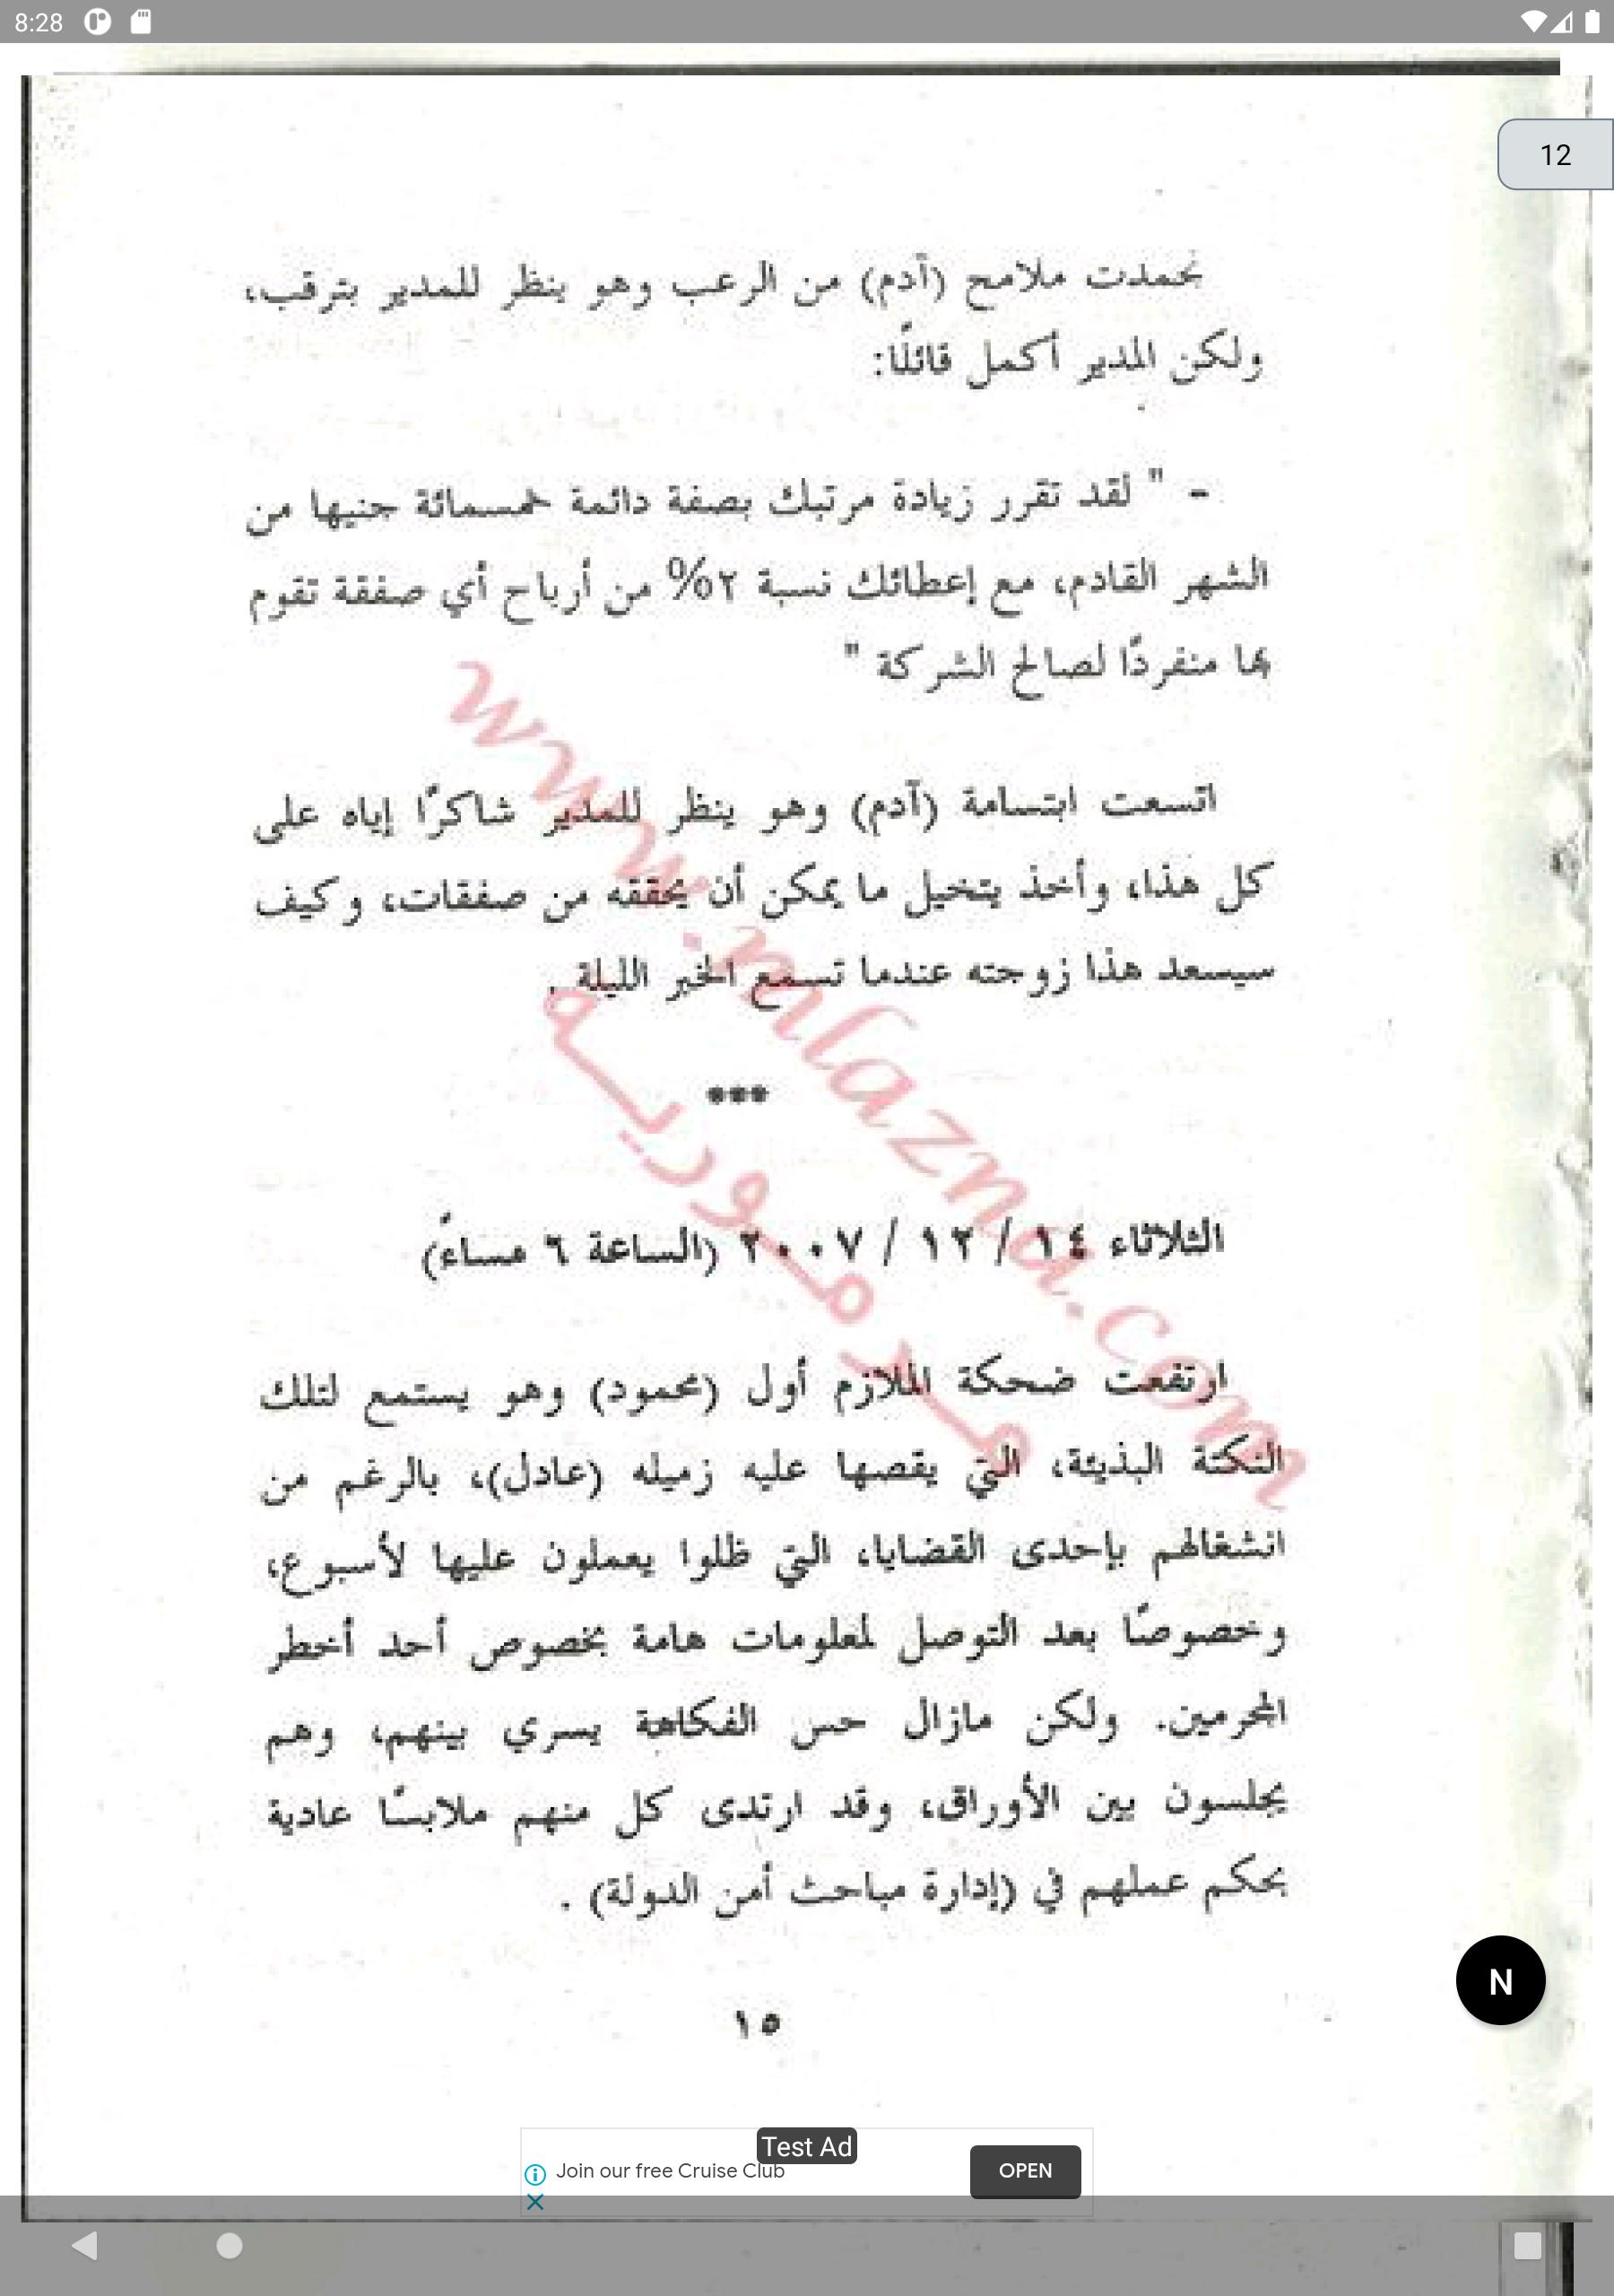 8:28
12
تجمدت ملامح (آدم) من الرعب وهو ينظر للمدير بترقب،
ولكن المدير أكمل قائلًا:
- " لقد تقرر زيادة مرتبك بصفة دائمة خمسمائة جنيها من
الشهر القادم، مع إعطائك نسبة ٢% من أرباح أي صفقة تقوم
بها منفردًا لصالح الشركة "
اتسعت ابتسامة (آدم) وهو ينظر للمدير شاكرًا إياه على
كل هذا، وأخذ يتخيل ما يمكن أن يحققه من صفقات، وكيف
سيسعد هذا زوجته عندما تسمع الخبر الليلة .
***
الثلاثاء ١٤ / ١٢ / ٢٠٠٧ (الساعة ٦ مساءً)
ارتفعت ضحكة الملازم أول (محمود) وهو يستمع لتلك
النكتة البذيئة، التي يقصها عليه زميله (عادل)، بالرغم من
انشغالهم بإحدى القضايا، التي ظلوا يعملون عليها لأسبوع،
وخصوصًا بعد التوصل لمعلومات هامة بخصوص أحد أخطر
المجرمين. ولكن مازال حس الفكاهة يسري بينهم، وهم
يجلسون بين الأوراق، وقد ارتدى كل منهم ملابسًا عادية
بحكم عملهم في (إدارة مباحث أمن الدولة) .
www.mlazna.com
مـرمـوريـة
N
١٥
Test Ad
Join our free Cruise Club
OPEN